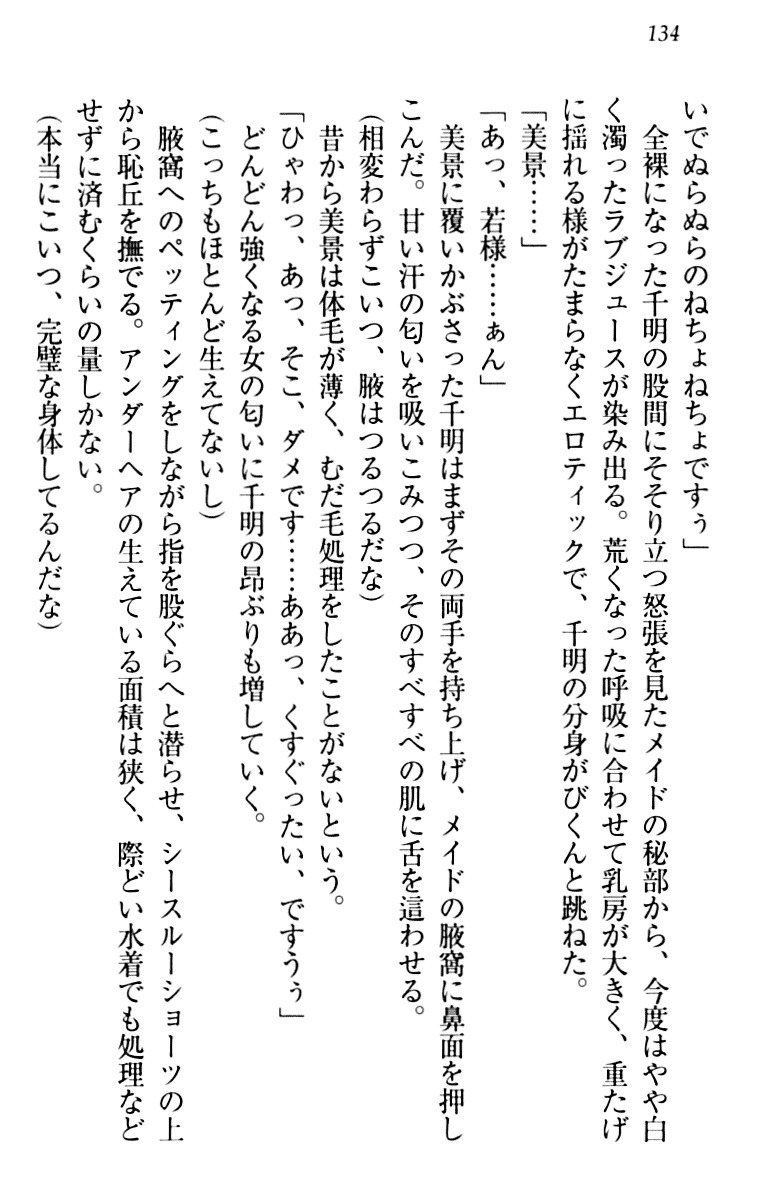 134
いでぬらぬらのねちょねちょですぅ」
　全裸になった千明の股間にそそり立つ怒張を見たメイドの秘部から、今度はやや白
く濁ったラブジュースが染み出る。荒くなった呼吸に合わせて乳房が大きく、重たげ
に揺れる様がたまらなくエロティックで、千明の分身がびくんと跳ねた。
「美景……」
「あっ、若様……ぁん」
　美景に覆いかぶさった千明はまずその両手を持ち上げ、メイドの腋窩に鼻面を押し
こんだ。甘い汗の匂いを吸いこみつつ、そのすべすべの肌に舌を這わせる。
（相変わらずこいつ、腋はつるつるだな）
　昔から美景は体毛が薄く、むだ毛処理をしたことがないという。
「ひゃわっ、あっ、そこ、ダメです……ああっ、くすぐったい、ですうぅ」
　どんどん強くなる女の匂いに千明の昂ぶりも増していく。
（こっちもほとんど生えてないし）
　腋窩へのペッティングをしながら指を股ぐらへと潜らせ、シースルーショーツの上
から恥丘を撫でる。アンダーヘアの生えている面積は狭く、際どい水着でも処理など
せずに済むくらいの量しかない。
（本当にこいつ、完璧な身体してるんだな）